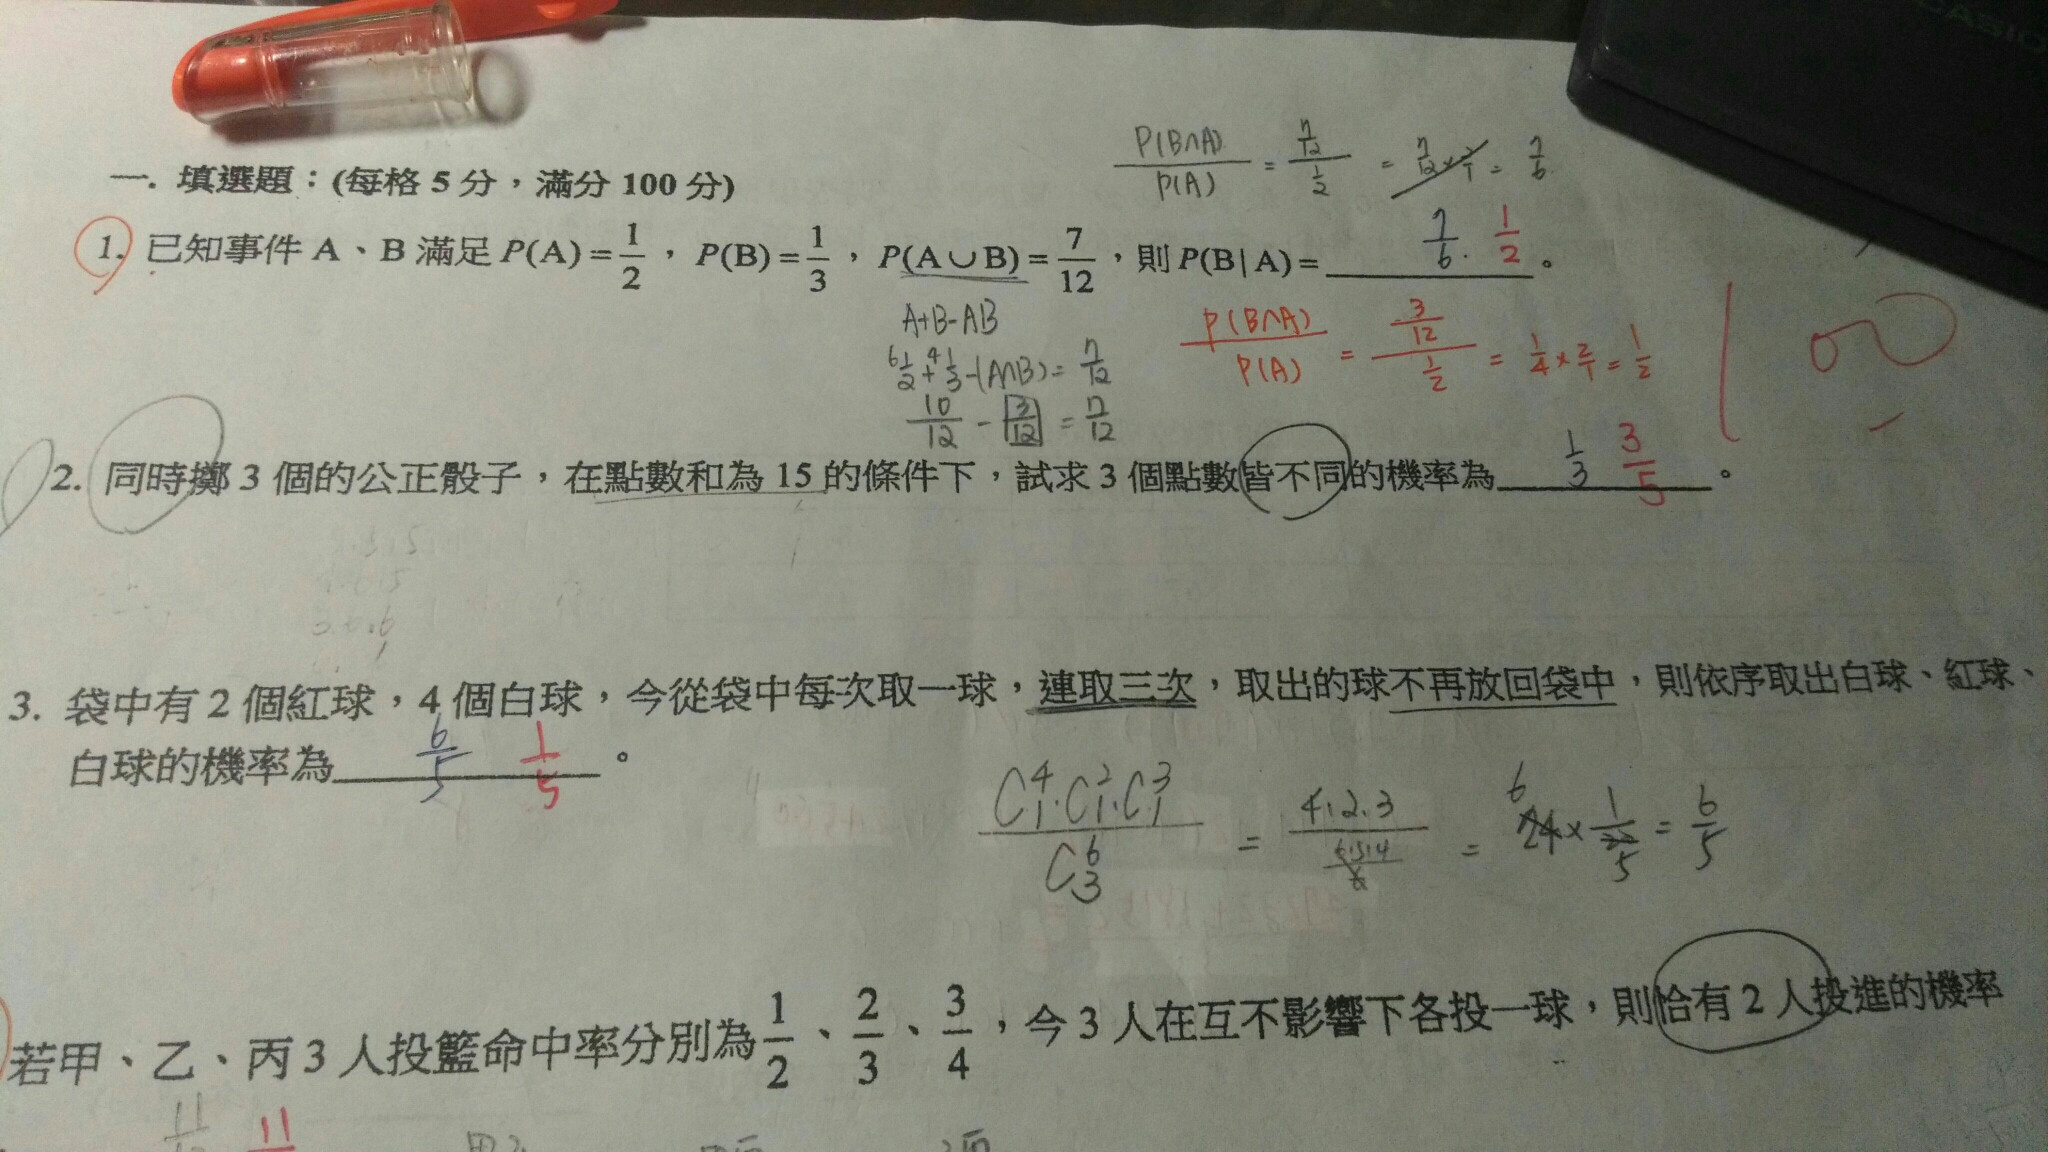 CASIO
P(B∩A)/P(A) = (7/12)/(1/2) = 7/12 × 2/1 = 7/6
一. 填選題：(每格 5 分，滿分 100 分)
1. 已知事件 A、B 滿足 P(A) = 1/2，P(B) = 1/3，P(A∪B) = 7/12，則 P(B|A) = 7/6. 1/2。
A+B-AB
6 1/2 + 4 1/3 -(A∩B) = 7/12
10/12 - 3/12 = 7/12
P(B∩A)/P(A) = (3/12)/(1/2) = 1/4 × 2/1 = 1/2
2. 同時擲 3 個的公正骰子，在點數和為 15 的條件下，試求 3 個點數皆不同的機率為 1/3 3/5。
3. 袋中有 2 個紅球，4 個白球，今從袋中每次取一球，連取三次，取出的球不再放回袋中，則依序取出白球、紅球、
白球的機率為 6/5 1/5。
C⁴₁·C²₁·C³₁/C⁶₃ = 4·2·3/(6·5·4/6) = 6 24 × 1/20 5 = 6/5
若甲、乙、丙 3 人投籃命中率分別為 1/2、2/3、3/4，今 3 人在互不影響下各投一球，則恰有 2 人投進的機率
11 11